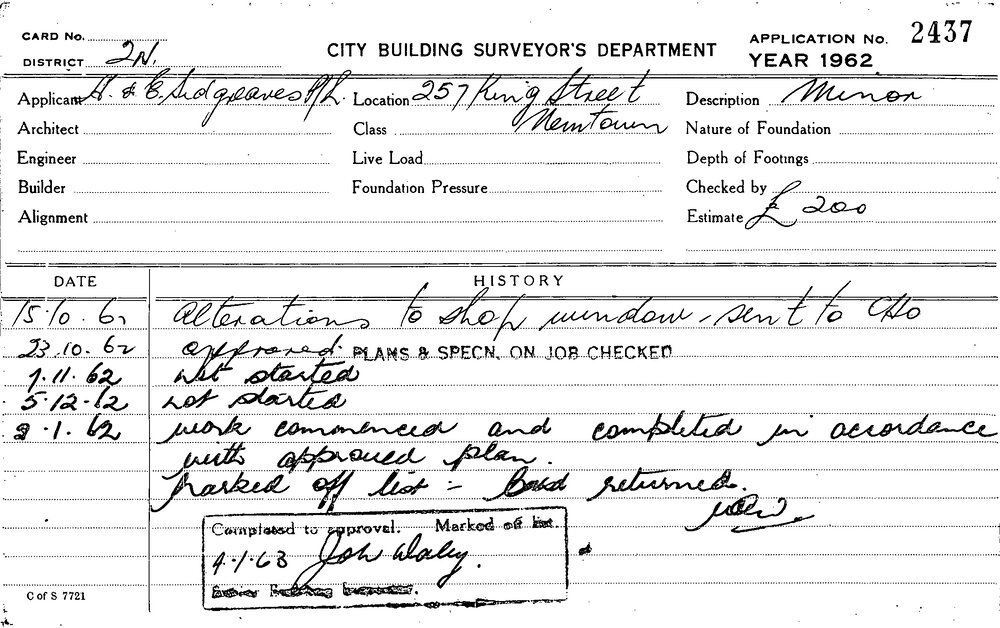 CARD No.
DISTRICT 2N.
CITY BUILDING SURVEYOR'S DEPARTMENT
APPLICATION No. 2437
YEAR 1962
Applicant H. & E. Sidgreaves P/L. Location 257 King Street Description Minor
Architect Class Newtown Nature of Foundation
Engineer Live Load Depth of Footings
Builder Foundation Pressure Checked by
Alignment Estimate £ 200
DATE HISTORY
15.10.62 Alterations to shop window - sent to CHO
23.10.62 approved. PLANS & SPECN. ON JOB CHECKED
7.11.62 not started
5.12.62 not started
2.1.62 work commenced and completed in accordance
with approved plan.
Marked off list - Card returned.
Completed to approval. Marked off list.
4.1.63 Joh Daley.
Senior Building Inspector.
C of S 7721